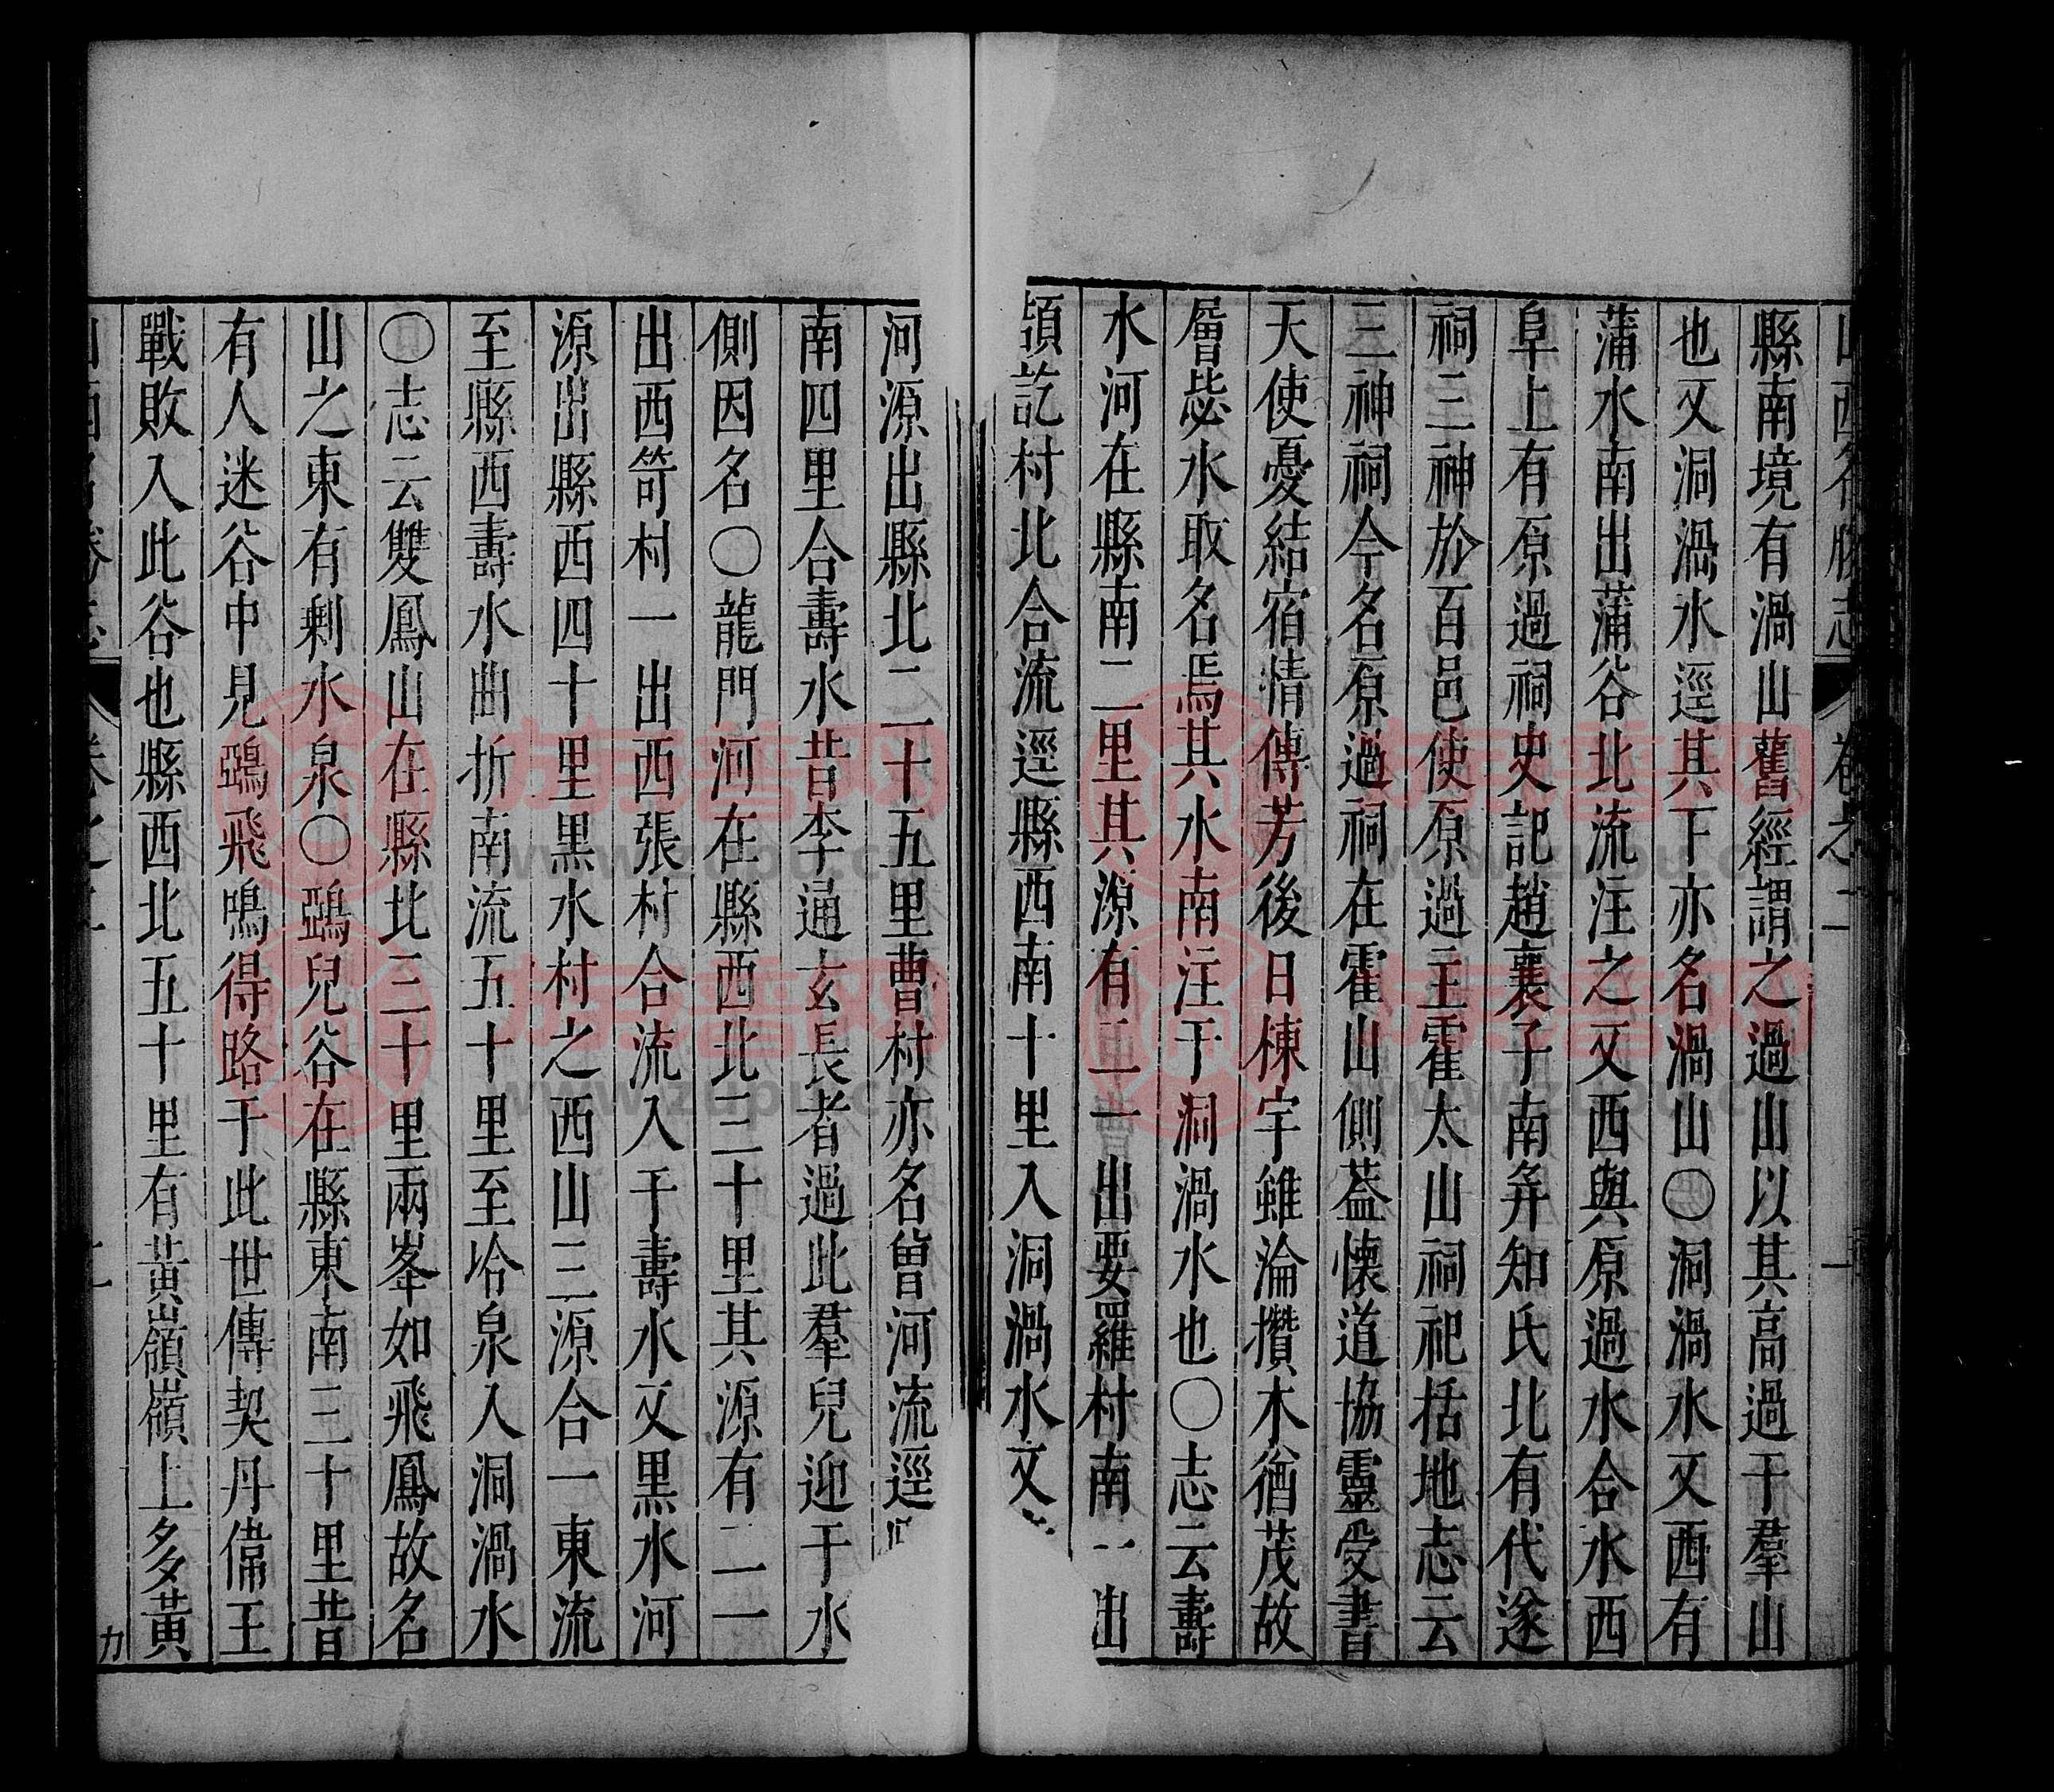 縣南境有渦山舊經謂之過山以其高過于羣山
也又洞渦水逕其下亦名渦山○洞渦水又西有
蒲水南出蒲谷北流注之又西與原過水合水西
阜上有原過祠史記趙襄子南并知氏北有代遂
祠三神於百邑使原過主霍太山祠祀括地志云
三神祠今名原過祠在霍山側葢懷道協靈受書
天使憂結宿情傳芳後日棟宇雖淪攢木猶茂故
層毖水取名焉其水南注于洞渦水也○志云壽
水河在縣南二里其源有三一出要羅村南一出
頡訖村北合流逕縣西南十里入洞渦水又
河源出縣北二十五里曹村亦名曾河流逕
南四里合壽水昔李通玄長者過此羣兒迎于水
側因名○龍門河在縣西北三十里其源有二一
出西笥村一出西張村合流入于壽水又黑水河
源出縣西四十里黑水村之西山三源合一東流
至縣西壽水曲折南流五十里至哈泉入洞渦水
○志云雙鳳山在縣北三十里兩峯如飛鳳故名
山之東有剩水泉○鵶兒谷在縣東南三十里昔
有人迷谷中見鵶飛鳴得路于此世傳契丹偉王
戰敗入此谷也縣西北五十里有黃嶺嶺上多黃